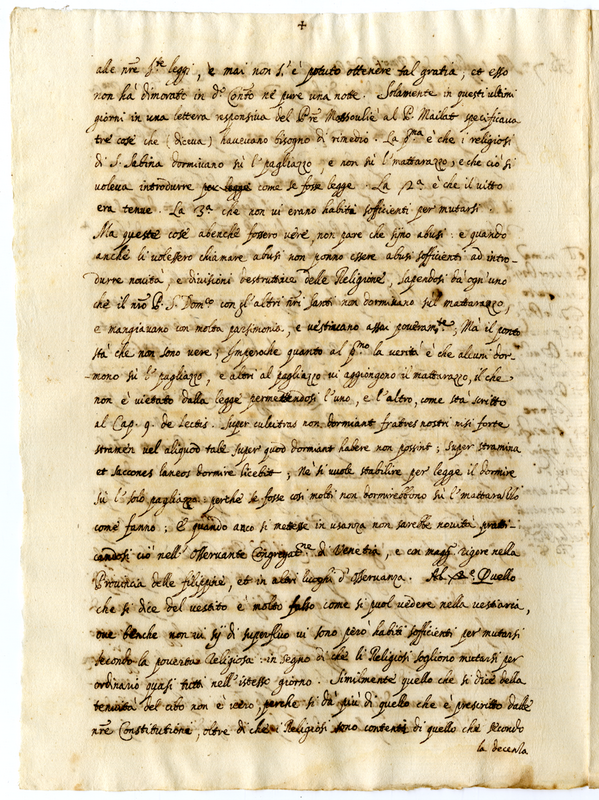 ✝
alle nre S.te leggi, e mai non s'è potuto ottenere tal gratia, et esso
non hà dimorato in d.o Conto nè pure una notte. Solamente in questi ultimi
giorni in una lettera responsiva del Pre Massoulie al P. Mailat specificava
tre cose che (diceva) havevano bisogno di rimedio. La p.ma è che i religiosi
di S. Sabina dormivano sù l' pagliazzo, e non sù l' mattarazzo, e che ciò si
voleva introdurre per legge come se fosse legge. La 2.a è che il vitto
era tenue. La 3.a che non vi erano habiti sofficienti per mutarsi.
Ma queste cose abenche fossero vere, non pare che sijno abusi: e quando
anche li volessero chiamare abusi non ponno essere abusi sofficienti ad intro-
durre novità, e divisioni destruttive della Religione, sapendosi da ogn'uno
che il nro P. S. Dom.co con gl'altri nri Santi non dormivano sul mattarazzo,
e mangiavano con molta parsimonia, e vestivano assai poveram.te; Mà il ponto
stà che non sono vere; Imperoche quanto al p.mo la verità è che alcuni dor-
mono sù l' pagliazzo, e altri al pagliazzo vi aggiongono il mattarazzo, il che
non è vietato dalla legge permettendosi l'uno, e l'altro, come sta scritto
al Cap. 9. de Lectis. Super culcitras non dormiant fratres nostri nisi forte
stramen vel aliquod tale super quod dormiant habere non possint; super stramina
et saccones laneos dormire licebit; Nè si vuole stabilire per legge il dormire
sù l' solo pagliazzo: perchè se fosse così molti non dormirebbono sù l' mattarazzo
come fanno; E quando anco si mettesse in usanza non sarebbe novità pratti-
candosi ciò nell' Osservante Congregat.ne di Venetia, e con magg.r rigore nella
Provincia delle Filippine, et in altri luoghi d' Osservanza. Al Quello
che si dice del vestito è molto falso come si puol vedere nella vestiaria,
ove benche non vi sij di superfluo vi sono però habiti sofficienti per mutarsi
secondo la povertà Religiosa: in segno di che li Religiosi sogliono mutarsi per
ordinario quasi tutti nell' istesso giorno. Similmente quello che si dice della
tenuità del cibo non è vero, perche si dà più di quello che è prescritto dalle
nre Constitutioni, oltre di che i Religiosi sono contenti di quello che secondo
la decenza